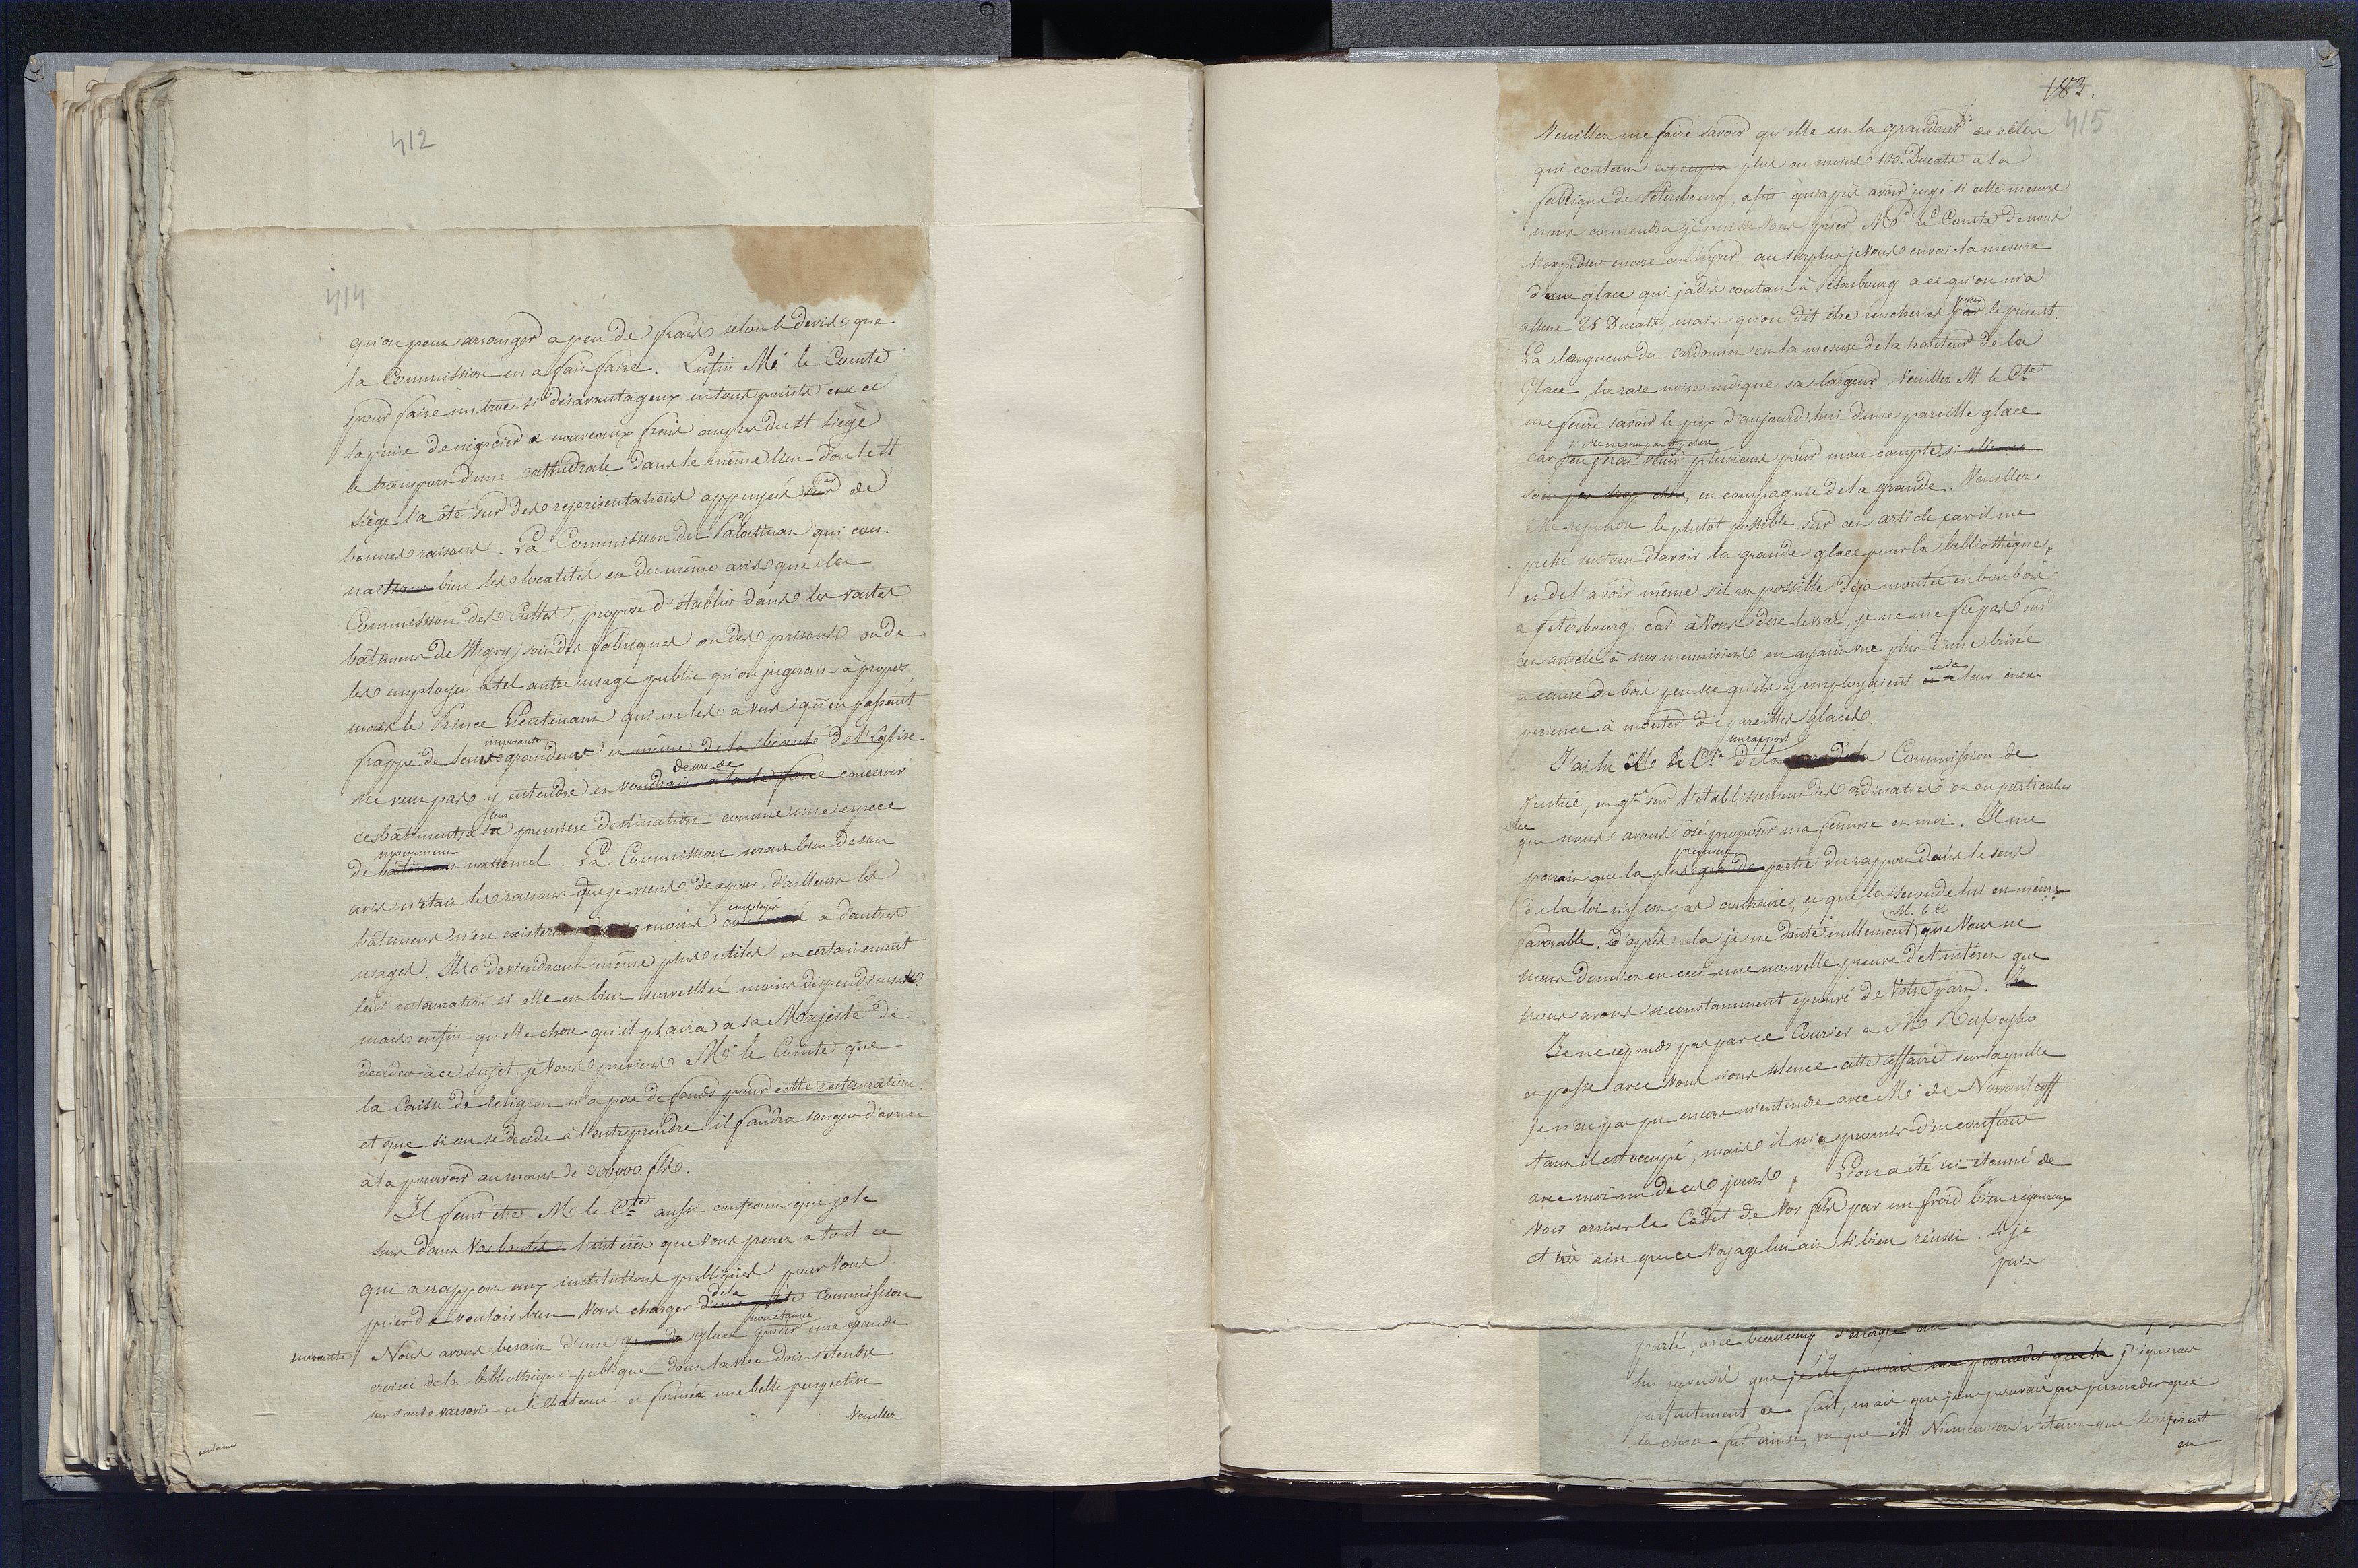 412
414
qu'on peut arranger a peu de frais selon le devis que
la Commission en a fait faire. Enfin Mr le Comte
pour faire un troc si desavantageux en tous points
la peine de negocier a nouveaux frais aupres du St Siège
le transport d'une cathedrale dans le même lieu d'ou le St
Siège l'a ôté sur des representations appuyées sur de
bonnes raisons. La Commission du Palatinat qui con-
nait bien les localités en du même avis que la
Commission des Cultes, propose d'établir dans les vastes
bâtimens de Wigry, soit des fabriques ou des prisons ou de
les employer à tel autre usage public qu'on jugerait à propos,
mais le Prince Lieutenant qui ne les a vus qu'en passant
imposante
frappé de leur grandeur et même de la beauté de l'Eglise
desire de
ne veut pas y entendre et voudrait a toute force conserver
leur
ces bâtimens, a sa premiere destination comme une espece
monument
de bâtiment national. La Commission serait bien de son
avis n'etait les raisons que je viens d'exposer, d'ailleurs les
employés
bâtimens n'en existeront pas moins a d'autres
usages. Ils deviendront même plus utiles et certainement
leur restauration si elle est bien surveillée moins dispendieuse
mais enfin quelle chose qu'il plaira a sa Majesté de
decider à ce sujet, je Vous previens Mr le Comte que
la Caisse de religion n'a pas de fonds pour cette restauration
et que si on se decide à l'entreprendre il faudra songer d'avance
à la pourvoir au moins de 300000 fls.
Il faut être Mr le Cte aussi confiant que je le
suis dans Vos bontés l'intérêt que Vous prenez a tout ce
qui a rapport aux institutions publiques pour Vous
de la
prier de vouloir bien Vous charger d'une petite commission
suivante
Nous avons besoin d'une grande glace pour une grande
croisée de la bibliothèque publique dont la vue doit s'etendre
sur toute varsovie et le chateau et former une belle perspective
Veuillez
entame
183.
415
Veuillez me faire savoir qu'elle est la grandeur de celles
qui coutent a peu pres plus ou moins 100. Ducats a la
fabrique de Petersbourg, afin qu'après avoir jugé si cette mesure
nous conviendra je puisse Vous prier Mr le Comte de nous
l'expedier encore cet hyver. au surplus je Vous envoi la mesure
d'une glace qui jadis coutait à Petersbourg a ce qu'on m'a
pour
assuré 25 Ducats, mais qu'on dit etre rencheries par le présent.
La longueur du cordonnet est la mesure de la hauteur de la
Glace, la raie noire indique sa largeur. Veuillez M le Cte
me faire savoir le prix d'aujourd'hui d'une pareille glace
si elle ne sont pas trop chere
car j'en ferai venir plusieurs pour mon compte si elle ne
sont pas trop chere, en compagnie de la grande. Veuillez
me repondre le plutôt possible sur cet article car il me
presse surtout d'avoir la grande glace pour la bibliothèque,
et de l'avoir même s'il est possible déja montée en bon bois
a Petersbourg. car à Vous dire le vrai, je ne me fie pas sur
cet article à nos menuisiers en ayant vue plus d'une brisée
et de
a cause du bois peu sec qu'ils y employaient et a leur inex-
perience à monter de pareilles glaces.
un rapport
J'ai lu Mr le Cte de la Commission de
Justice, en gl sur l'etablissement des ordinaties et en particulier
celle
que nous avons ôsé proposer ma femme et moi. Il me
premiere
parait que la plus grande partie du rapport dans le sens
de la loi n'y est pas contraire, et que la seconde lui est même
M. l. C
favorable. D'après cela je ne doute nullement que Vous ne
nous donniez en ceci une nouvelle preuve de l'intérêt que
nous avons si constamment eprouvé de Votre part. Je
Je ne réponds pas par ce Courier a Mr
et passe avec Vous sous silence cette affaire sur laquelle
je n'ai pas pu encore m'entendre avec Mr de Nowosiltzoff
tant il est occupé, mais il m'a promis d'en conférer
avec moi un de ces jours. L'on a été ici etonné de
voir arriver le Cadet de Vos fils par un froid bien rigoureux
et très aise que ce Voyage lui ait si bien réussi. si je
puis
parlé, avec beaucoup d'energie
lui repondis que je ne pouvais me persuader que j'ignorais
parfaitement ce fait, mais que je ne pouvais me persuader que
la chose fut ainsi, vu que M Niemcewicz n'etant que le réferent
en